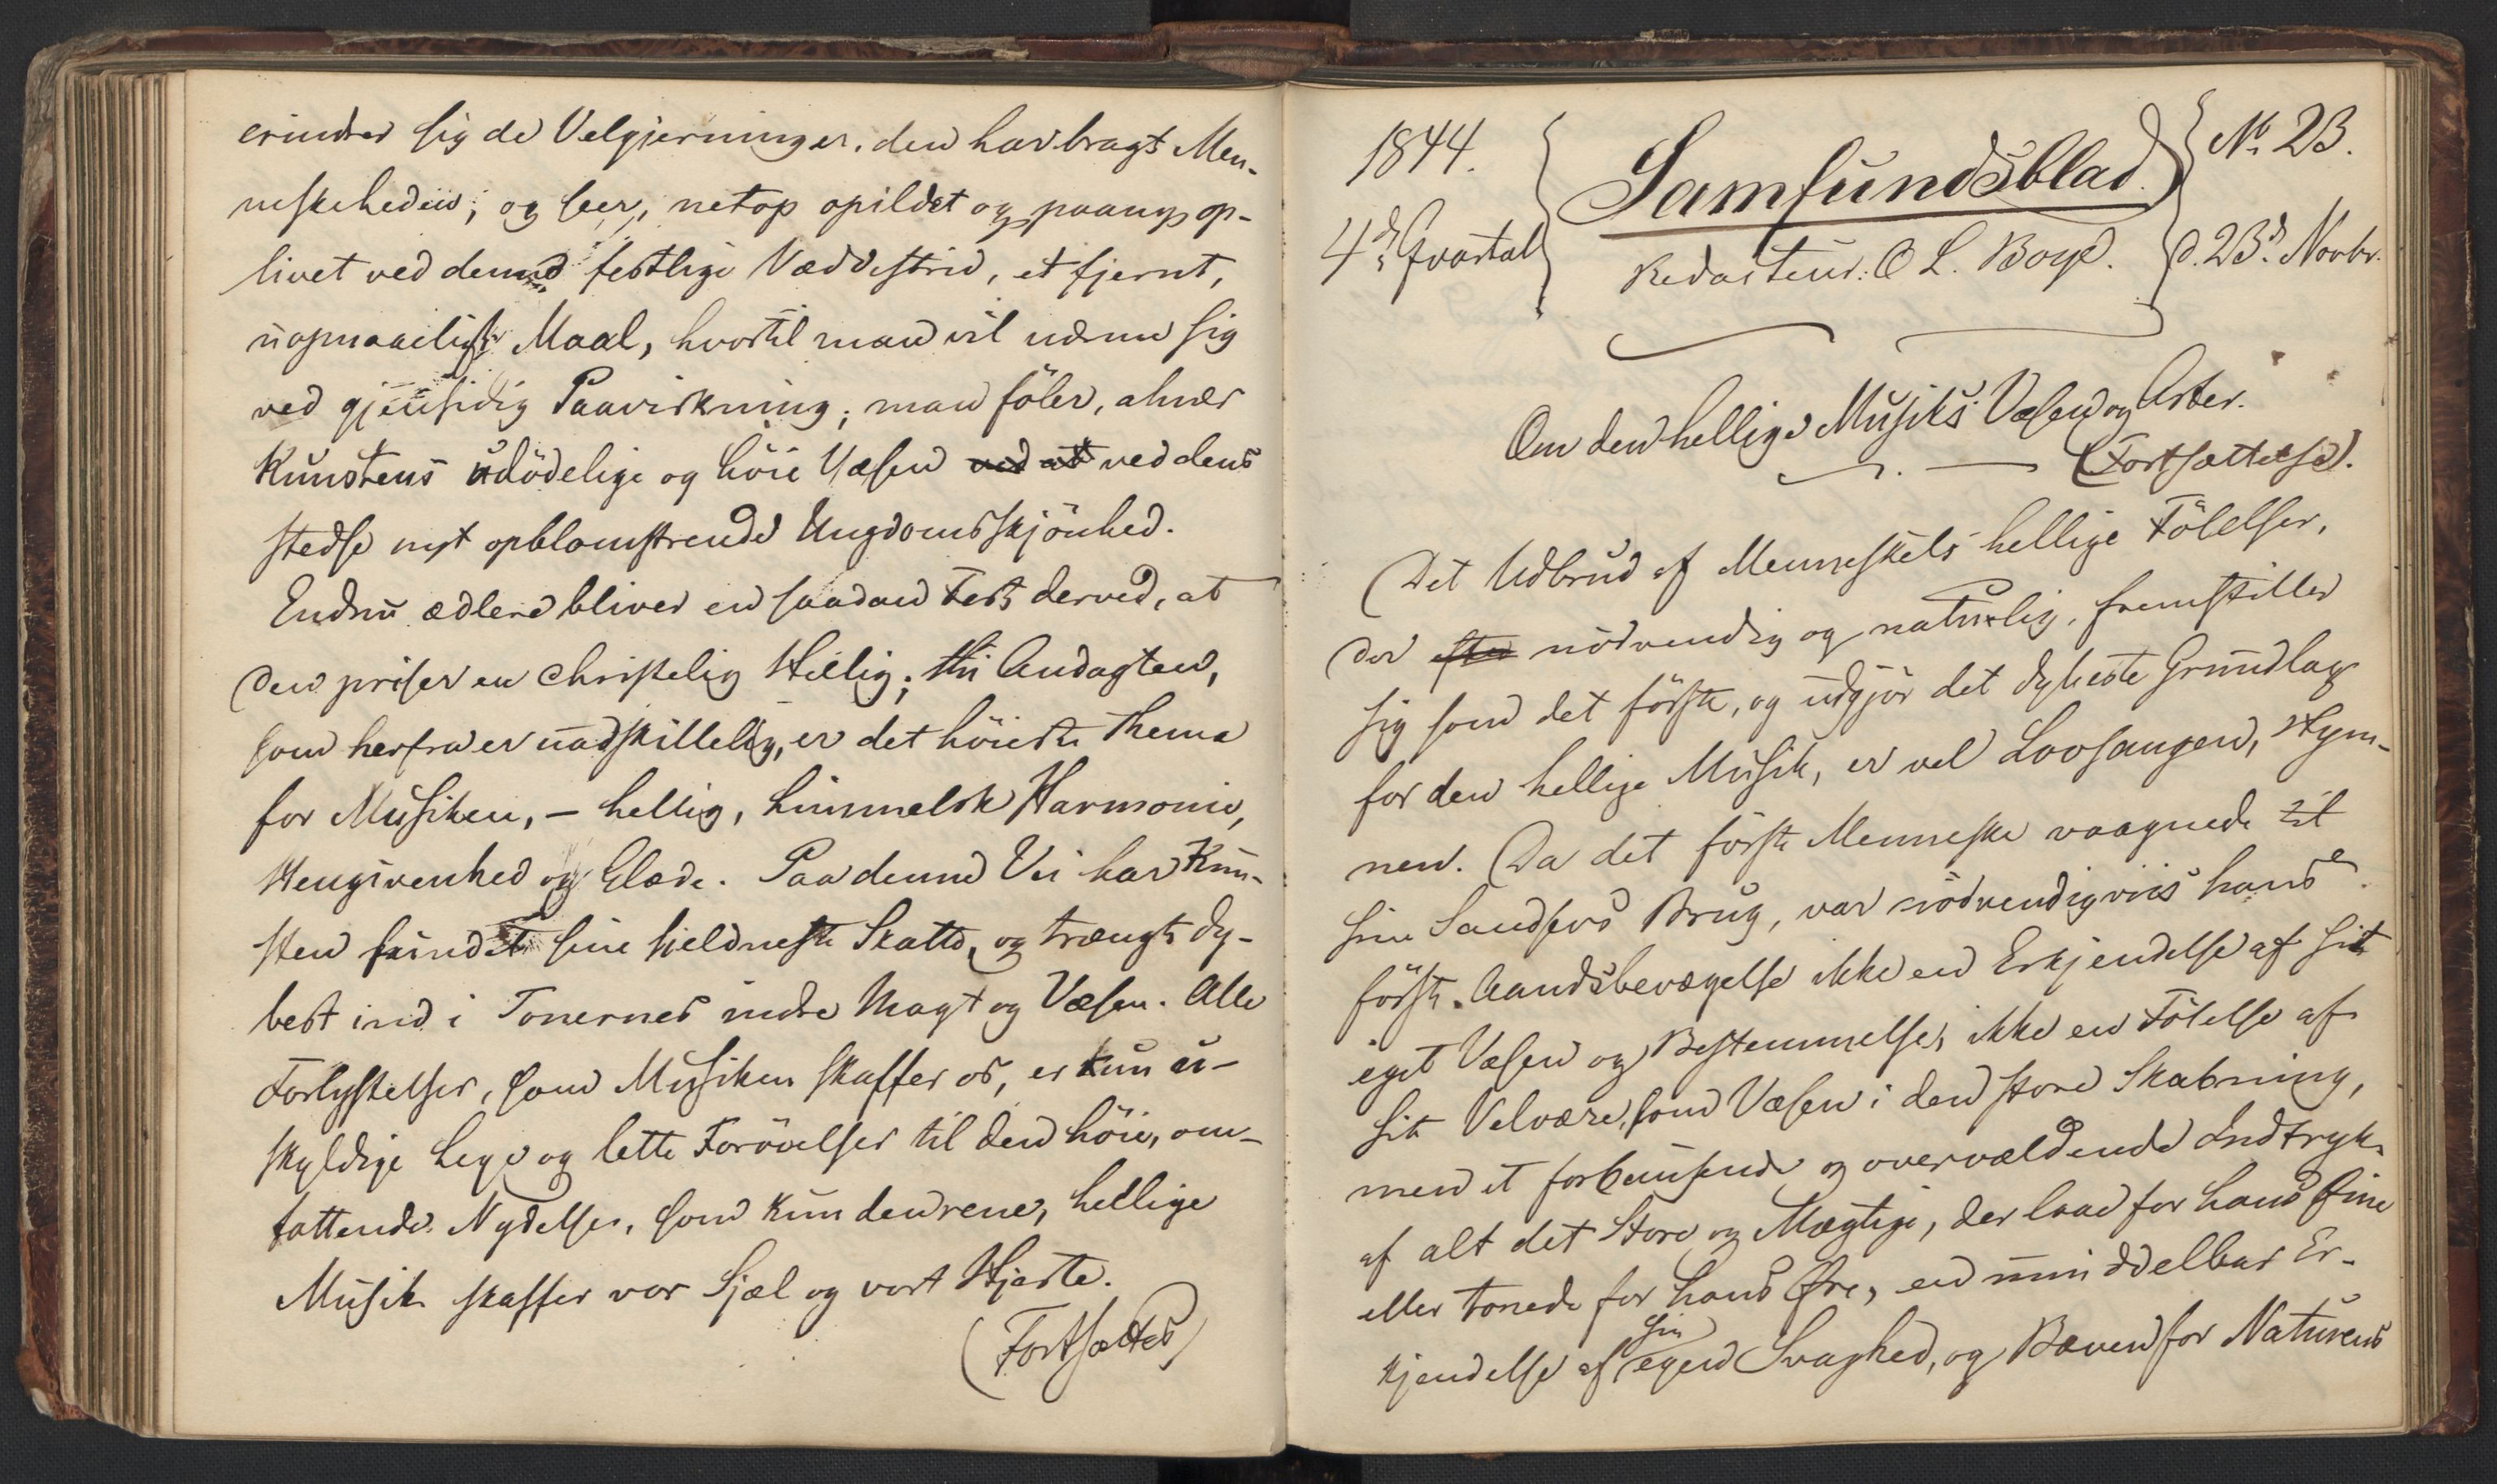 erindrer sig de Velgjerninger, den har bragt Men-
neskeheden; og seer, netop opildet og paany op-
livet ved denne festlige Væddestrid, et fjernt,
uopnaaeligt Maal, hvortil man vil nærme sig
ved gjensidig Paavirkning; man föler, ahner
Kunstens udödelige og höie Væsen ved at ved dens
stedse nyt opblomstrende Ungdomsskjönhed.
Endnu ædlere bliver en saadan Fest derved, at
den priser en christelig Hellig; thi Andagten,
som herfra er uadskillelig, er det höieste Thema
for Musiken, - hellig, himmelsk Harmonie,
Hengivenhed og Glæde. Paa denne Vei har Kun-
sten fundet sine sjeldneste Skatte, og trængt dy-
best ind i Tonernes indre Magt og Væsen. Alle
Forlystelser, som Musiken skaffer os, er kun u-
skyldige Lege og lette Forövelser til den höie, om-
fattende Nydelse, som kun den rene, hellige
Musik skaffer vor Sjæl og vort Hjerte.
(Fortsættes)
1844.
4de Qvartal
Samfundsblad.
Redacteur: O L. Boye.
No. 23.
d. 23de Novbr.
Om den hellige Musiks Væsen og Arter.
(Fortsættelse).
Det Udbrud af Menneskets hellige Fölelser,
der nödvendig og naturlig, fremstiller
sig som det förste, og udgjör det dybeste Grundlag
for den hellige Musik, er vel Lovsangen, Hym-
nen. Da det förste Menneske vaagnede til
sine Sandsers Brug, var nödvendigviis hans
förste Aandsbevægelse ikke en Erkjendelse af sit
eget Væsen og Bestemmelse, ikke en Fölelse af
sit Velvære, som Væsen i den store Skabning,
men et forbausende og overvældende Indtryk
af alt det Store og Mægtige, der laae for hans Øine
eller tonede for hans Øre, en umiddelbar Er-
kjendelse af sin egen Svaghed, og Bæven for Naturens